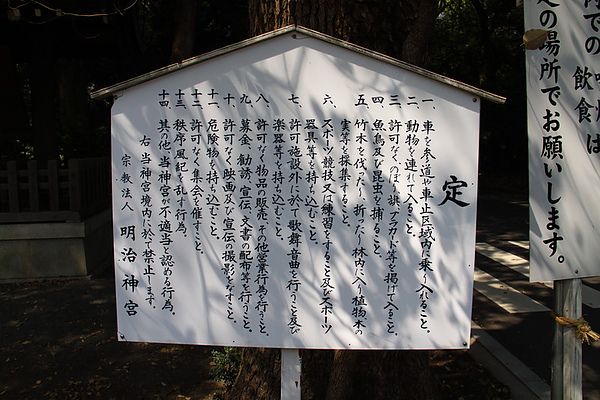 定
一、車を参道や車止区域内に乗り入れること。
二、動物を連れて入ること。
三、許可なくのぼり旗、プラカード等を掲げて入ること。
四、魚鳥及び昆虫を捕ること。
五、竹木を伐ったり、折ったり林内に入り植物木の
実等を採集すること。
六、スポーツ競技又は練習をすること及びスポーツ
器具等を持ち込むこと。
七、許可施設外に於て歌舞音曲を行うこと及び
楽器等を持ち込むこと。
八、許可なく物品の販売、その他営業行為を行うこと。
九、募金、勧誘、宣伝、文書の配布等を行うこと。
十、許可なく映画及び宣伝の撮影をなすこと。
十一、危険物を持ち込むこと。
十二、許可なく集会を催すこと。
十三、秩序、風紀を乱す行為。
十四、其の他、当神宮が不適当と認める行為。
右 当神宮境内に於て禁止します。
宗教法人 明治神宮
飲食
の場所でお願いします。